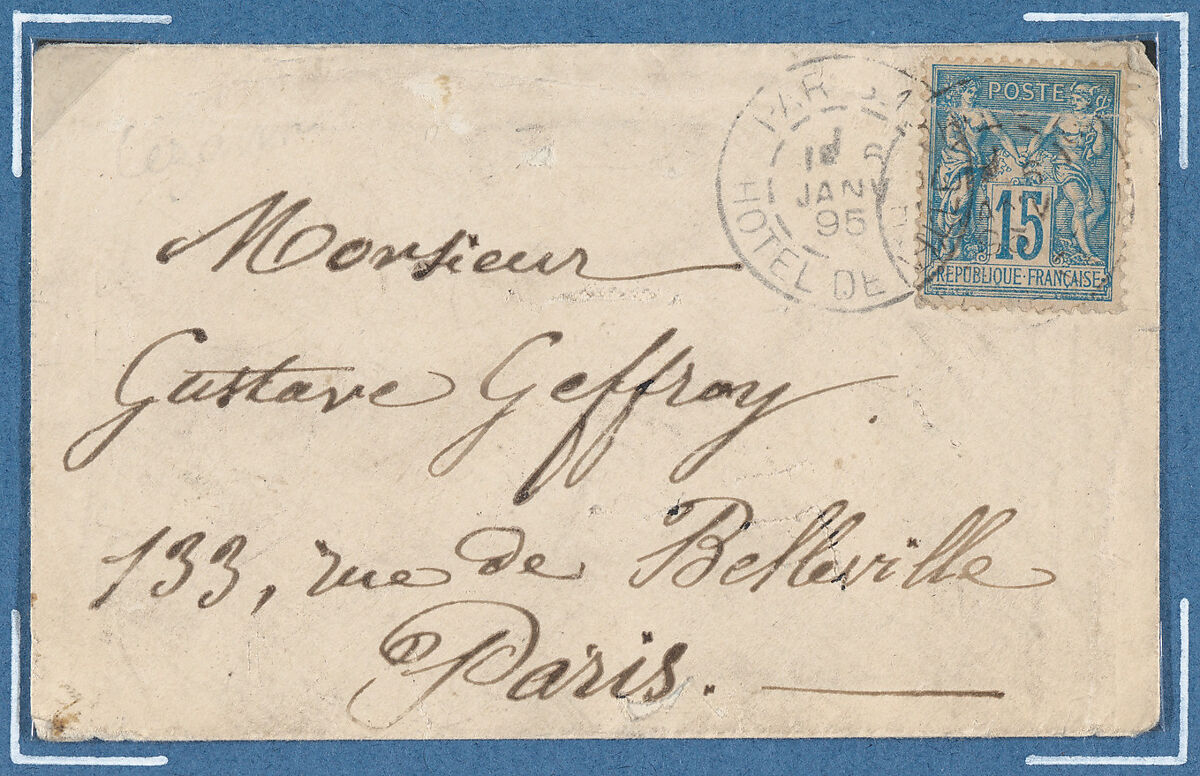 Monsieur
Gustave Geffroy
133, rue de Belleville
Paris.
HOTEL DE
JANV
95
POSTE
15
REPUBLIQUE·FRANÇAISE